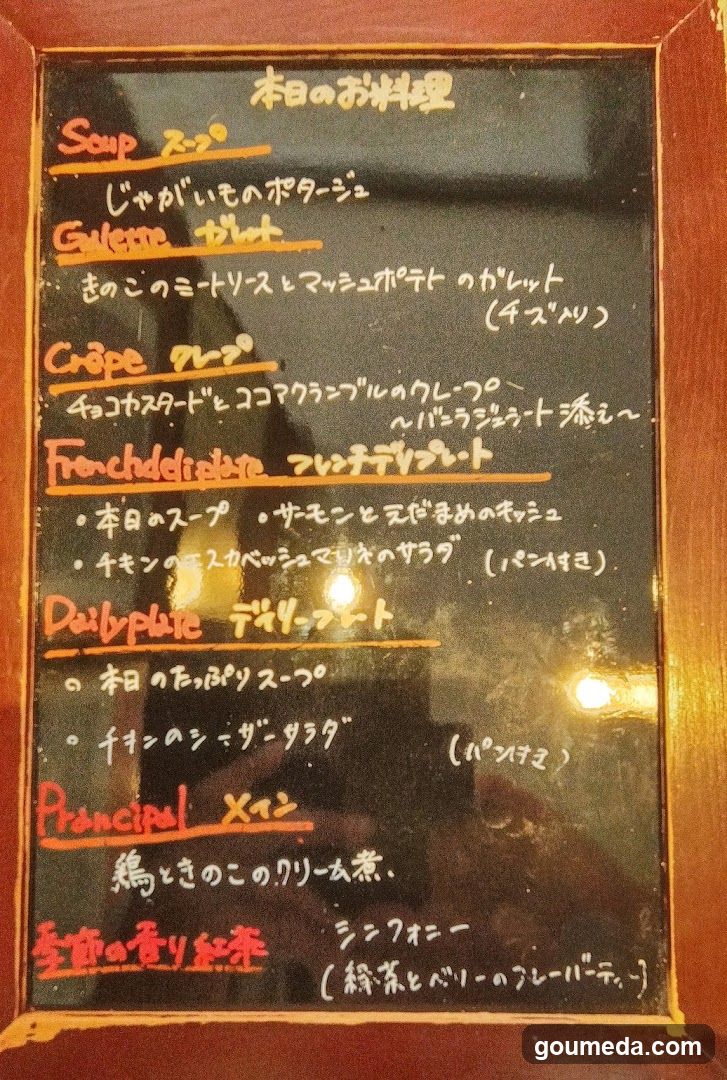 本日のお料理
Soup スープ
じゃがいものポタージュ
Galette ガレット
きのこのミートソースとマッシュポテトのガレット
(チーズ入り)
Crêpe クレープ
チョコカスタードとココアクランブルのクレープ
～バニラジェラート添え～
Frenchdeliplate フレンチデリプレート
・本日のスープ ・サーモンとえだまめのキッシュ
・チキンのエスカベッシュマリネのサラダ (パン付き)
Dailyplate デイリープレート
・本日のたっぷりスープ
・チキンのシーザーサラダ (パン付き)
Prancipal メイン
鶏ときのこのクリーム煮.
季節の香り紅茶 シンフォニー
(緑茶とベリーのフレーバーティー)
goumeda.com